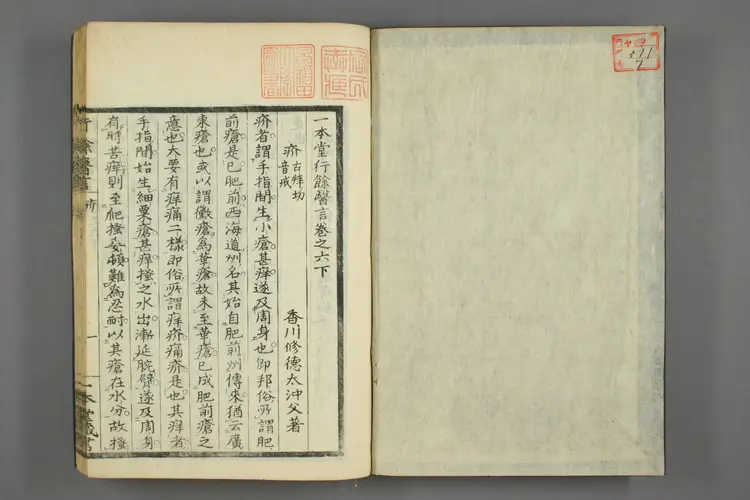 一本堂行餘醫言卷之六下
香川修德太沖父著
疥 古拜切 音戒
疥者謂手指間生小瘡甚痒遂及周身也卽邦俗所謂肥
前瘡是已肥前西海道州名其始自肥前州傳來猶云廣
東瘡也或以謂黴瘡為華瘡故未至華瘡已成肥前瘡之
意也大要有痒痛二樣即俗所謂痒疥痛疥是也其痒者
手指間始生細粟瘡甚痒搔之水出漸延腕臂遂及周身
有時苦痒則至爬搔妄頓難為忍耐以其瘡在水分故搔
行餘醫言
疥
一
一本堂藏書